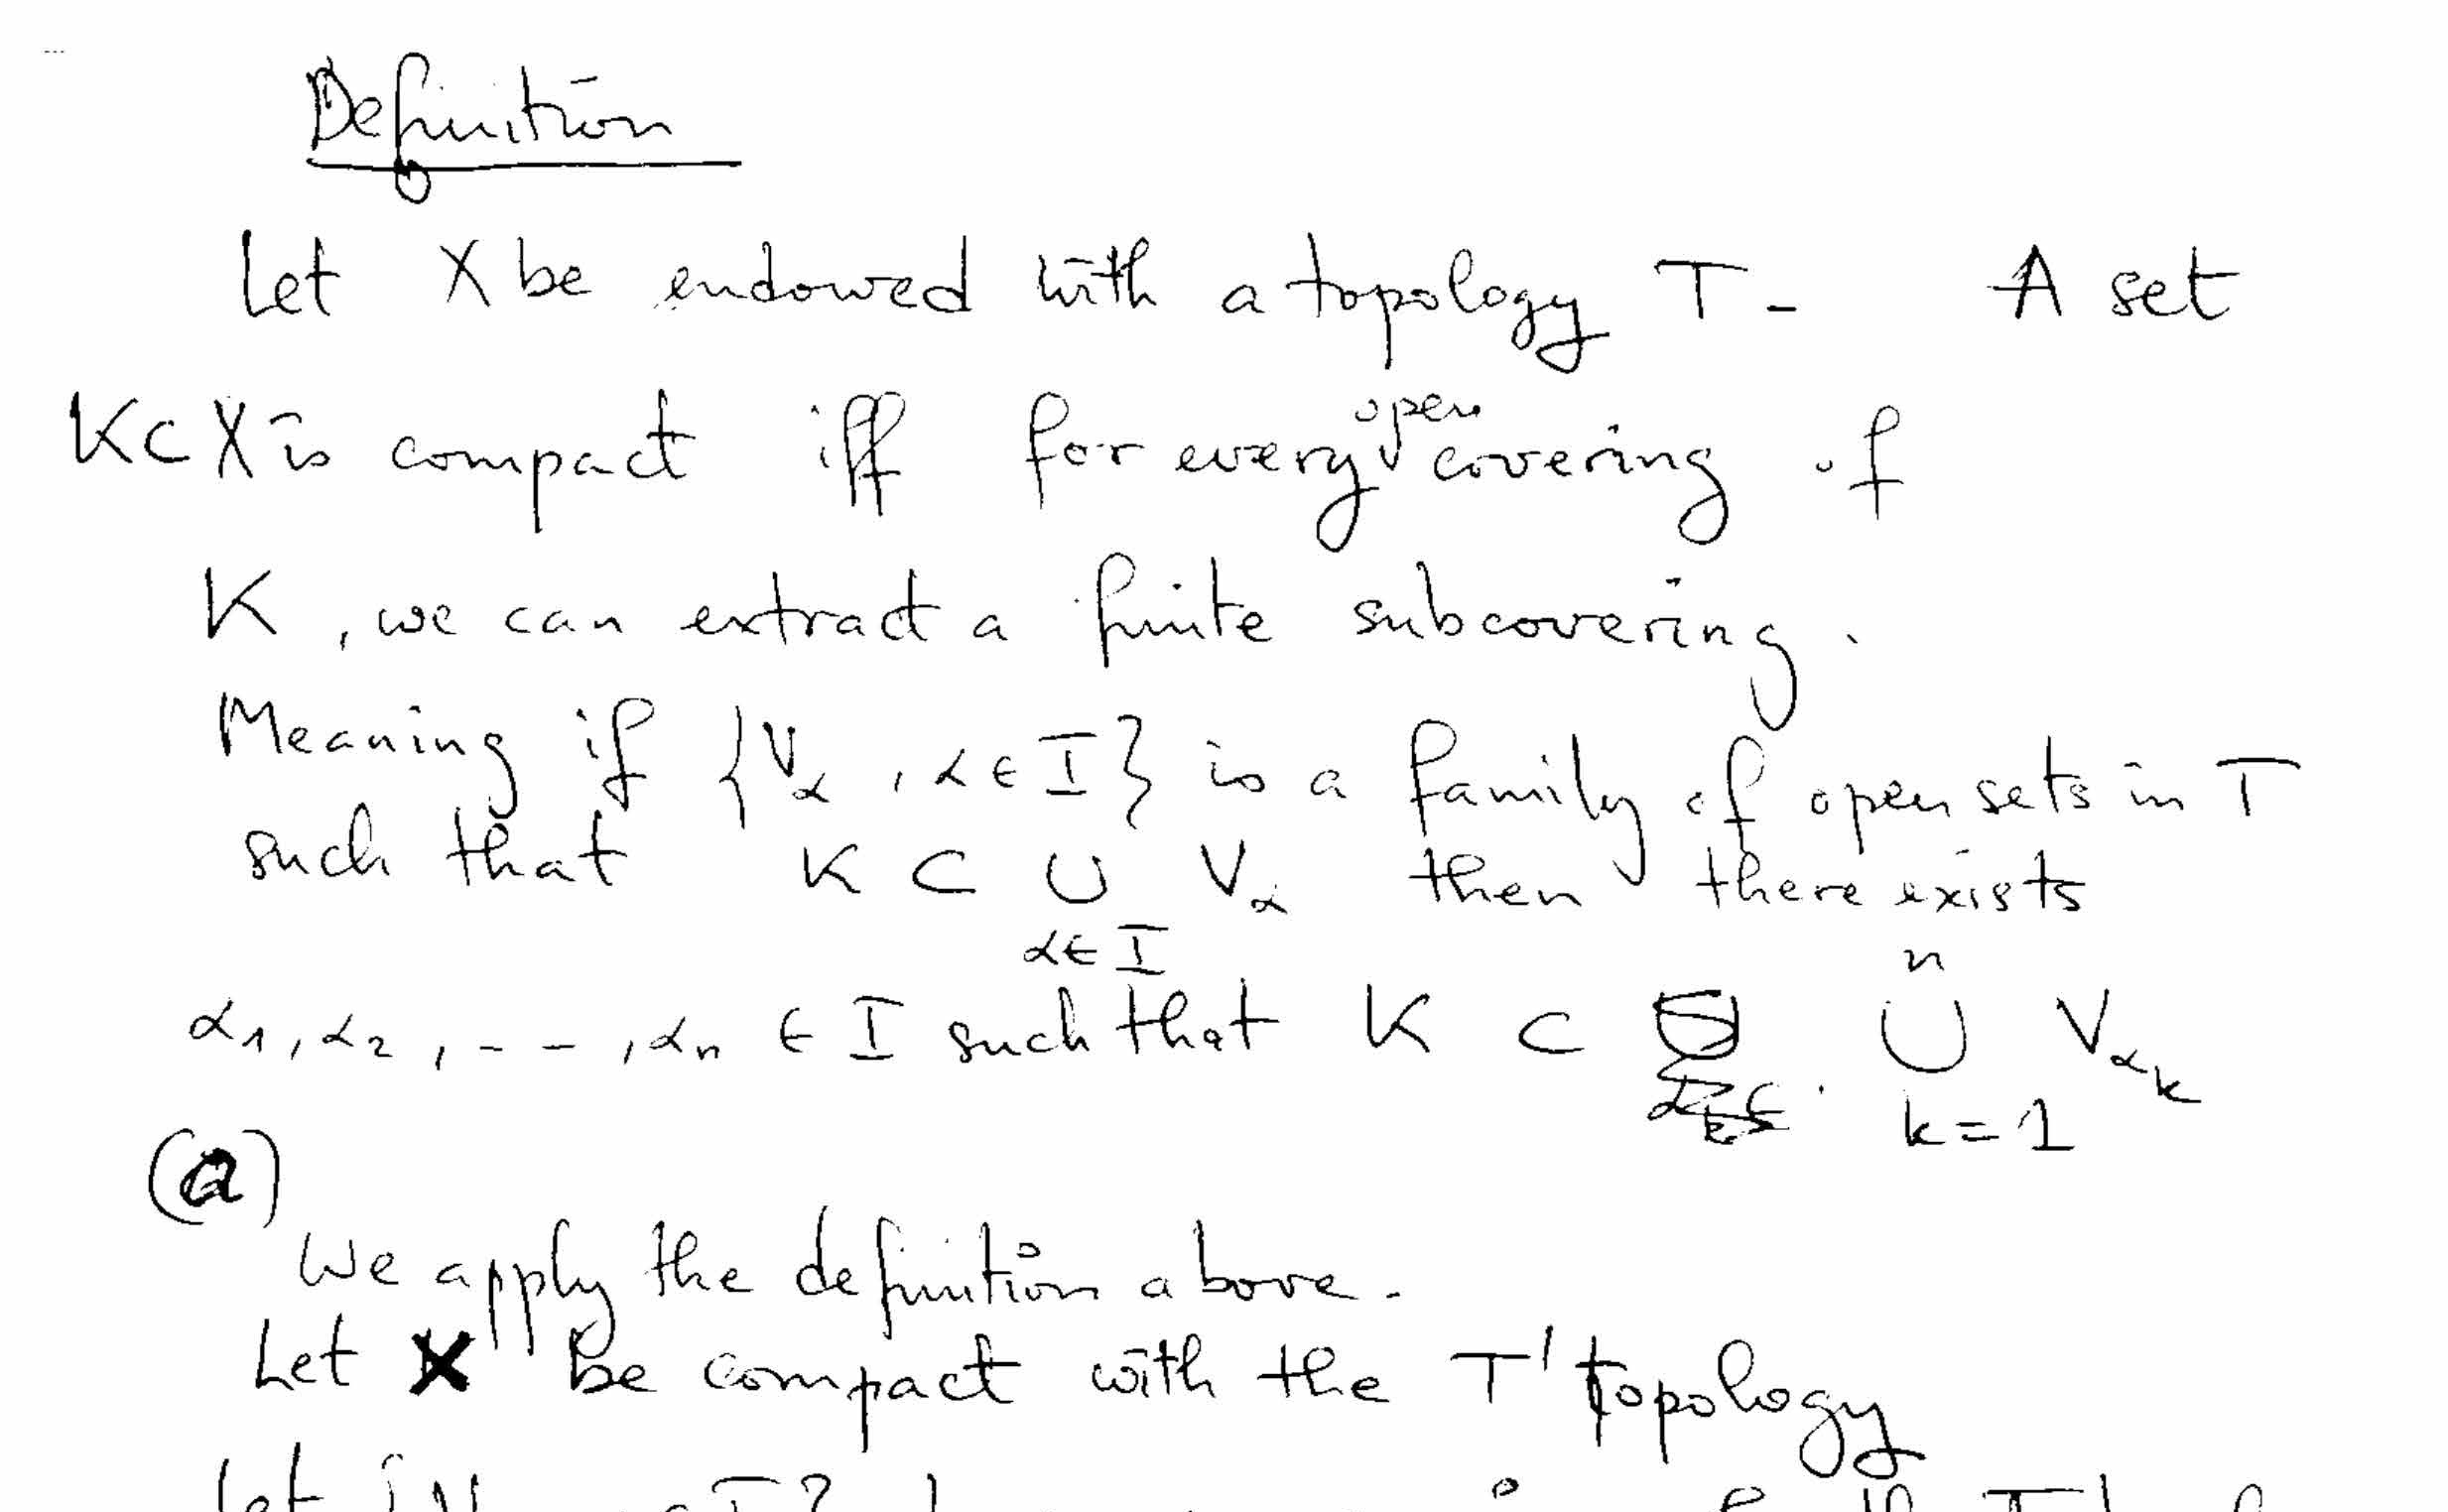 Definition
Let X be endowed with a topology T - A set
K⊂X is compact iff for every open covering of
K, we can extract a finite subcovering.
Meaning if {V_α, α∈I} is a family of open sets in T
such that K ⊂ ∪_{α∈I} V_α then there exists
α₁, α₂, - - , αₙ ∈ I such that K ⊂ ∪_{k=1}^{n} V_{α_k}
(a)
We apply the definition above.
Let X be compact with the T' topology
Let